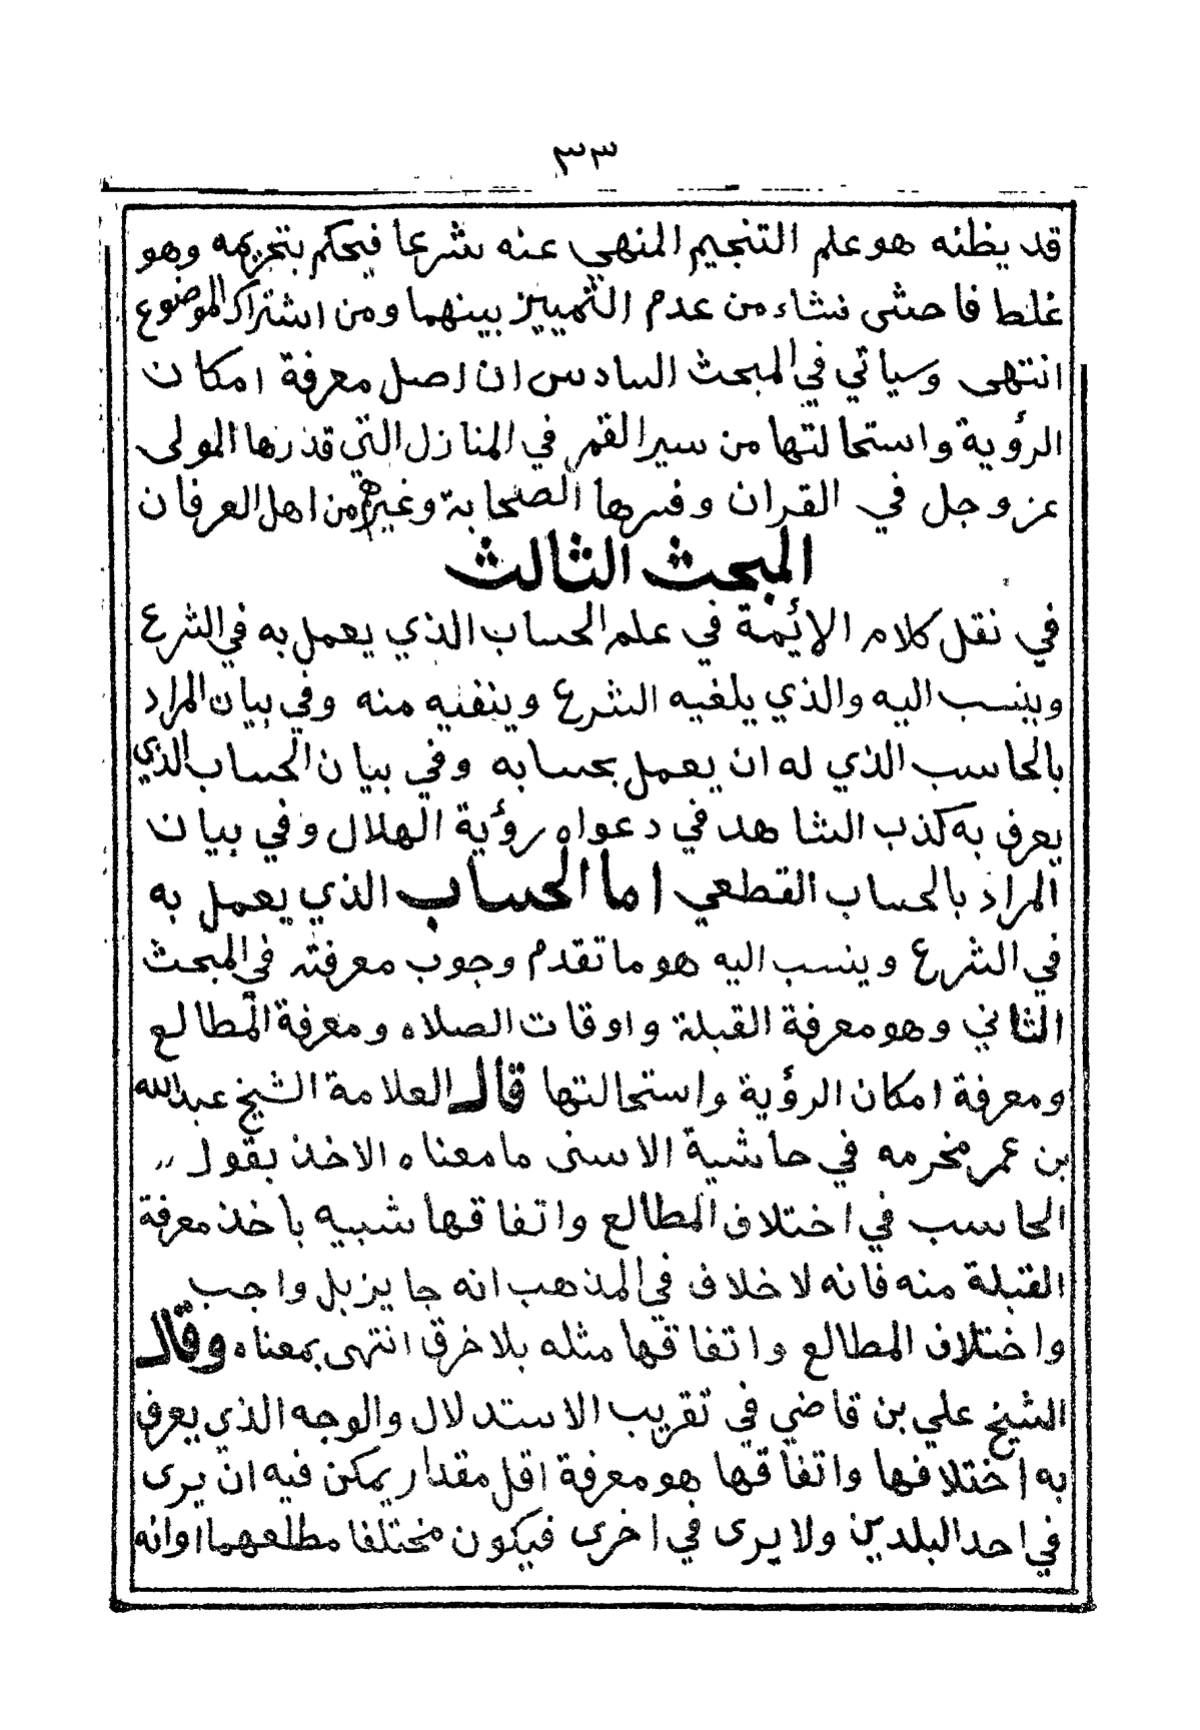 ٣٣
قد يظنه هو علم التنجيم المنهي عنه شرعا فيحكم بتحريمه وهو
غلط فاحش نشاء من عدم التمييز بينهما ومن اشتراك الموضوع
انتهى وسياتي في المبحث السادس ان اصل معرفة امكان
الرؤية واستحالتها من سير القمر في المنازل التي قدرها المولى
عز وجل في القران وفسرها الصحابة وغيرهم من اهل العرفان
المبحث الثالث
في نقل كلام الإئمة في علم الحساب الذي يعمل به في الشرع
وينسب اليه والذي يلغيه الشرع وينفيه منه وفي بيان المراد
بالحاسب الذي له ان يعمل بحسابه وفي بيان الحساب الذي
يعرف به كذب الشاهد في دعواه رؤية الهلال وفي بيان
المراد بالحساب القطعي اما الحساب الذي يعمل به
في الشرع وينسب اليه هو ما تقدم وجوب معرفته في المبحث
الثاني وهو معرفة القبلة واوقات الصلاه ومعرفة المطالع
ومعرفة امكان الرؤية واستحالتها قال العلامة الشيخ عبدالله
بن عمر مخرمه في حاشية الاسنى ما معناه الاخذ بقول ,,
الحاسب في اختلاف المطالع واتفاقها شبيه باخذ معرفة
القبلة منه فانه لا خلاف في المذهب انه جايز بل واجب
واختلاف المطالع واتفاقها مثله بلا خرق انتهى بمعناه وقال
الشيخ علي بن قاضي في تقريب الاستدلال والوجه الذي يعرف
به اختلافها واتفاقها هو معرفة اقل مقدار يمكن فيه ان يرى
في احد البلدين ولا يرى في اخرى فيكون مختلفا مطلعهما اوانه